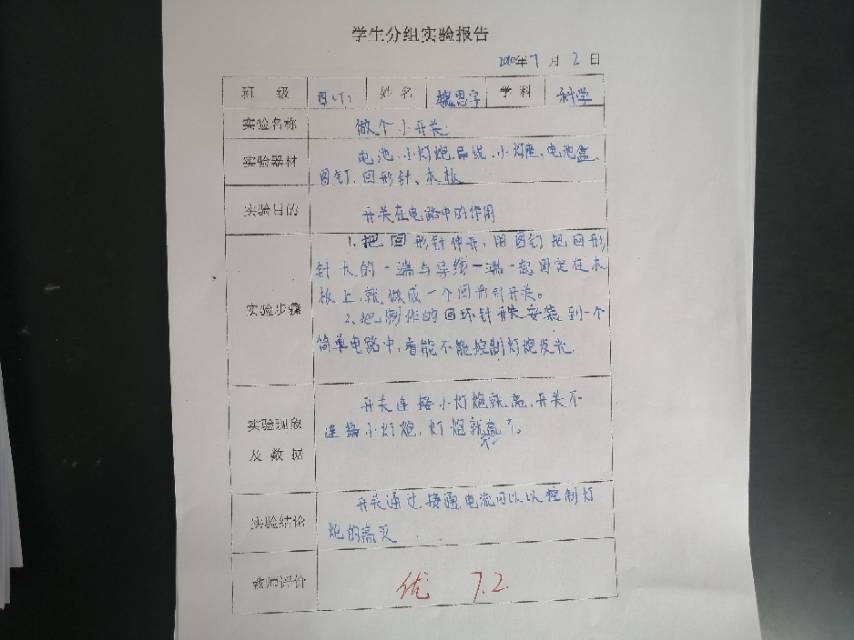 学生分组实验报告
2020年7月2日
班 级 四(1) 姓名 魏思宇 学科 科学
实验名称 做个小开关
实验器材 电池、小灯炮、导线、小灯座、电池盒、
图钉、回形针、木板
实验目的 开关在电路中的作用
实验步骤 1.把回形针伸开,用图钉把回形
针长的一端与导线一端一起固定在木
板上,就做成一个回形针开关。
2.把制作的回环针开关安装到一个
简单电路中,看能不能控制灯炮发光.
实验现象及数据 开关连接小灯炮就亮,开关不
连接小灯炮,灯炮就不亮。
实验结论 开关通过接通电流可以以控制灯
炮的亮灭
教师评价 优 7.2